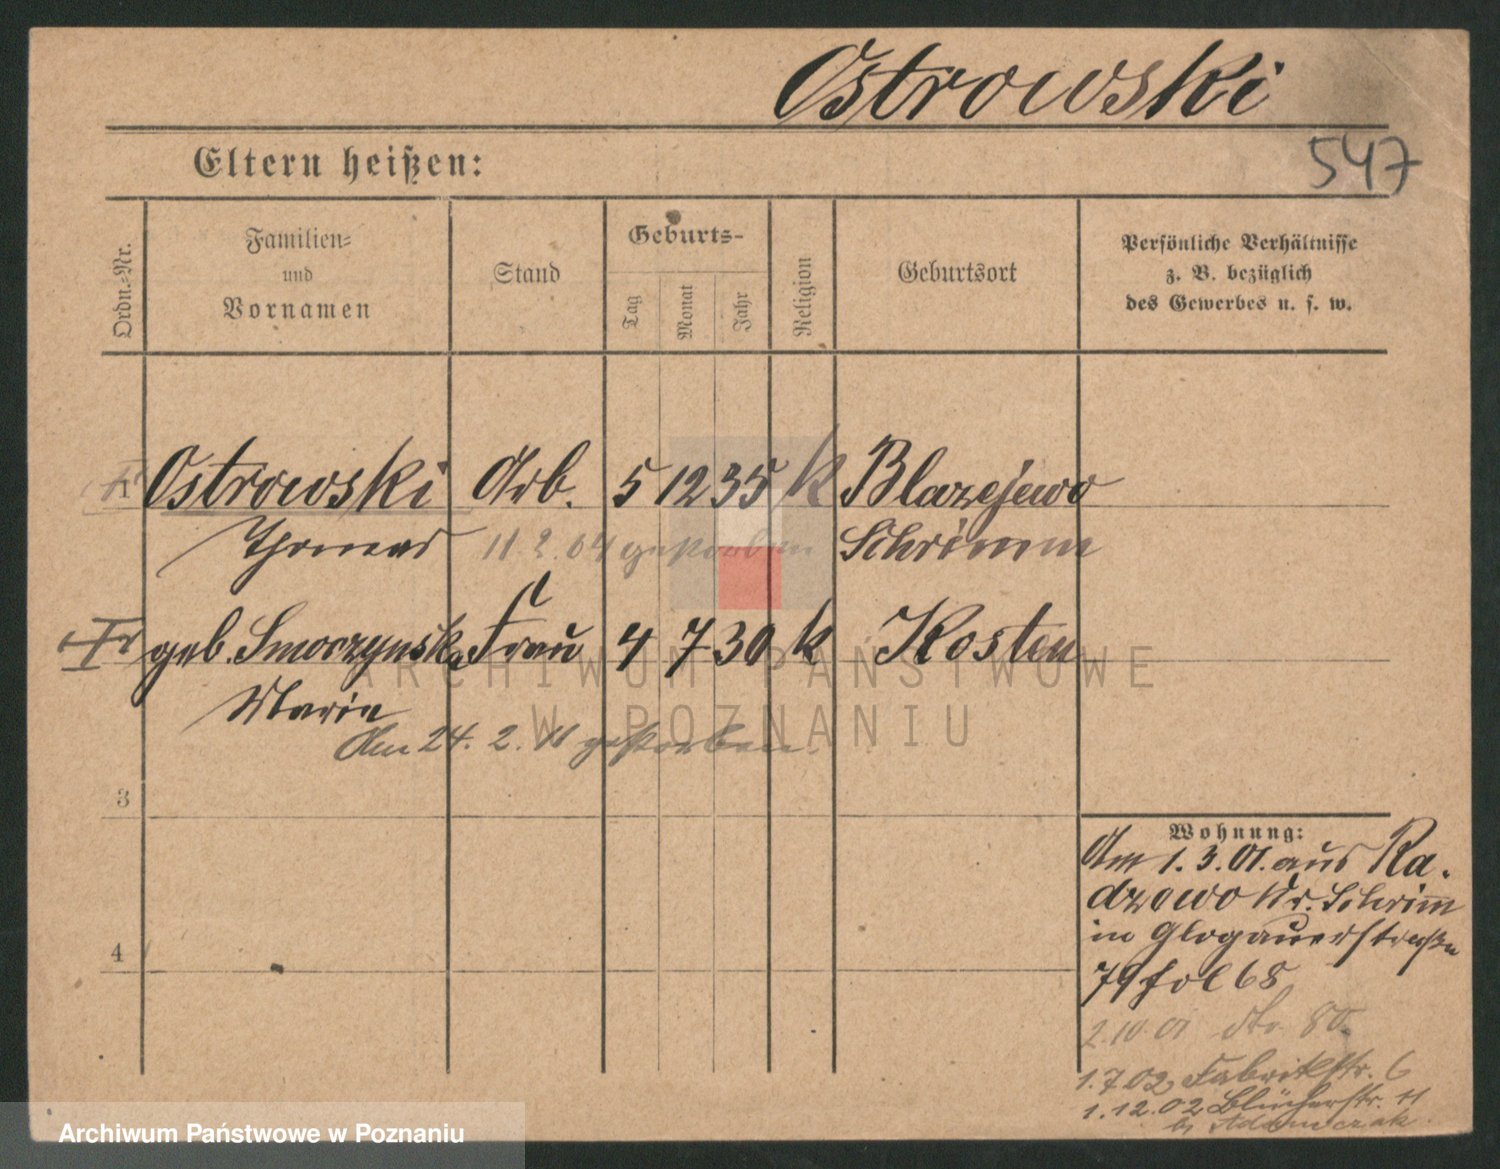 Ostrowski
547
Eltern heißen:
Ordn.-Nr.
Familien-
und
Vornamen
Stand
Geburts-
Tag
Monat
Jahr
Religion
Geburtsort
Persönliche Verhältnisse
z. B. bezüglich
des Gewerbes u. s. w.
1 Ostrowski Arb. 5 12 35 k Blazejewo
Thomas 11.2.04 gestorben Schrimm
geb. Smoczynska Frau 4 7 30 k Kosten
Maria
Am 24. 2. 11 gestorben.
3
4
Wohnung:
Am 1. 3. 01. aus Ra-
dzewo Kr. Schrimm
in Glogauerstraße
79 fol 68
2.10.01 dto. 80.
1.7.02 Fabrikstr. 6
1.12.02 Blücherstr. 11
b. Adamczak
ARCHIWUM PAŃSTWOWE
W POZNANIU
Archiwum Państwowe w Poznaniu